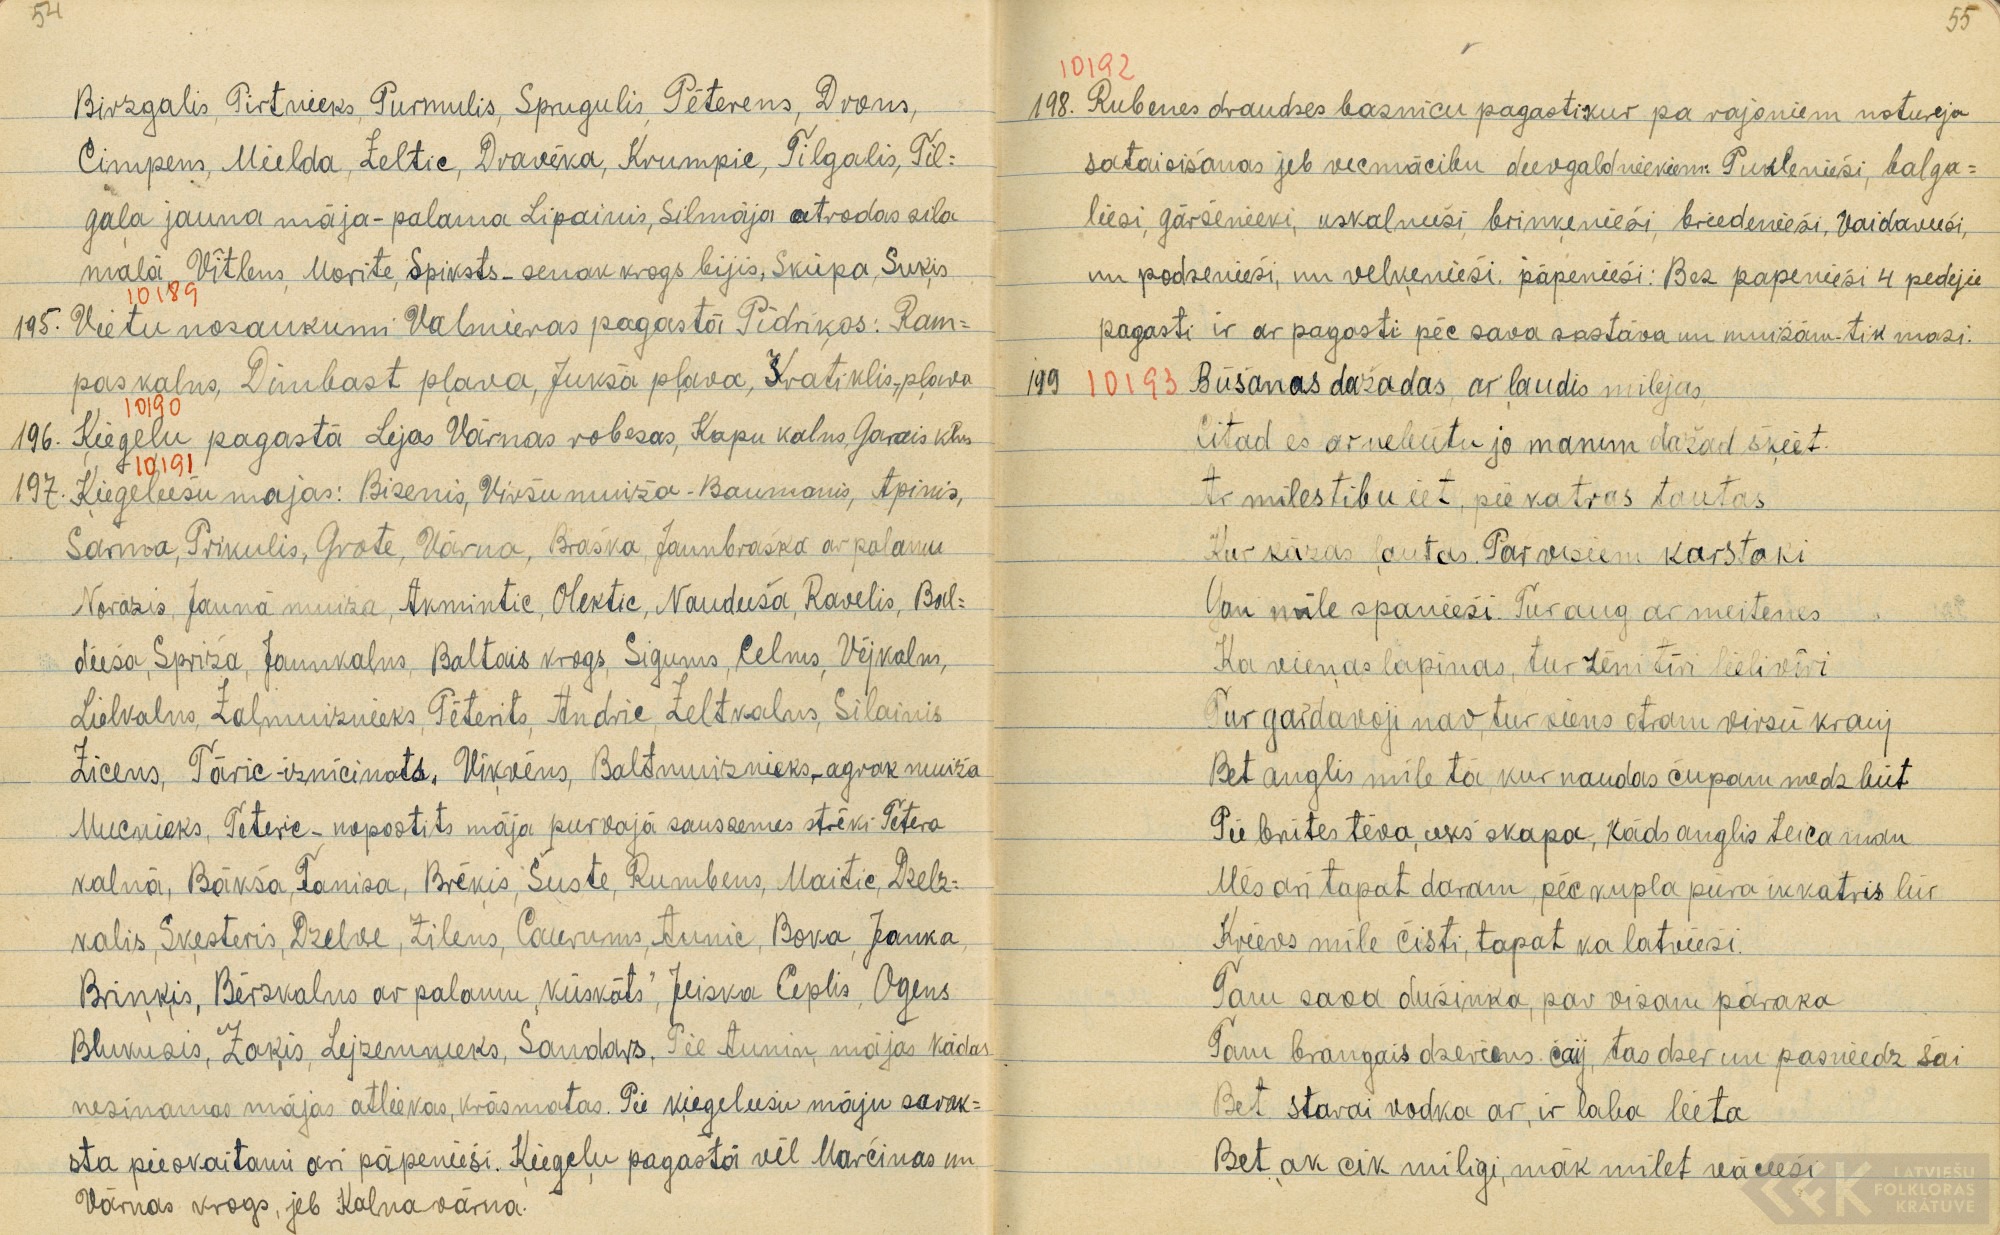 54
Birzgalis, Pirtnieks, Purmulis, Sprugulis, Pēterens, Drons,
Cimpens, Mielda, Zeltic, Dravēka, Krumpie, Tilgalis, Til=
gaļa jauna māja-palama Lipainis, Silmāja atrodas sila
malā, Vītlens, Morite, Spiksts-senak krogs bijis, Skūpa, Sukis
10189
195. Vietu nosaukumi Valmieras pagastā Pidriķos: Ram=
pas kalns, Dimbast pļava, Jukšā pļava, Kratiklis-pļava
10190
196. Ķieģeļu pagastā Lejas Vārnas robezas, Kapu kalns, Garais klns
10191
197. Ķiegeleešu majas: Bisenis, Viršu muiža-Baumanis, Apinis,
Sarma, Prikulis, Grote, Vārna, Braška, Jaunbraška ar palamu
Norāzis, Jaunā muiza, Akmintic, Olektic, Naudueša, Ravelis, Bal=
dieša, Spriža, Jaunkalns, Baltais krogs, Sigums, Celms, Vējkalns,
Lielkalns, Zaļmuiznieks, Pēterits, Andrie, Zeltkalns, Silainis
Zicens, Tāric-iznīcinats, Vikvēns, Baltmuiznieks-agrak muiža
Mucnieks, Peterie-nopostits māja purvajā sauszemes strēki Pētera
kalnā, Bākša, Tanisa, Brēķis, Šuste, Rumbens, Maitic, Dzelz=
kalis, Sķesteris, Dzelve, Zilens, Caurums, Aunie, Boka, Janka,
Brinķis, Bērzkalns ar palamu „kūskāts", Jeiska Ceplis, Ogens
Blukusis, Zaķis, Lejzemnieks, Sandars. Pie Aunin mājas kādas
nezinamas mājas atliekas, krāsmatas. Pie ķiegeleešu māju sarak=
sta pieskaitami ari pāpenieši. Ķiegeļu pagastā vēl Marčinas un
Vārnas krogs, jeb Kalna vārna.
55
10192
198. Rubenes draudzes baznicu pagasti kur pa rajoniem noturēja
sataisišanas jeb vecmācibu deevgaldniekiem: Puxlenieši, balga=
lieši, gāršenieki, uskalnieši, brinķenieši, briedenieši, Vaidavieši,
un podzenieši, un velķenieši. pāpenieši: Bez papenieši 4 pedejie
pagasti ir ar pagasti pēc sava sastāva un muižām-tik mazi.
199 10193 Būšanas dažadas, ar ļaudis milejas,
Citad es ar nebūtu jo manim dažad šķiet.
Ar milestibu iet, pie katras tautas
Kur kāzas ļautas. Par visiem karstaki
Gan mīle spanieši. Tur aug ar meitenes
Ka vieņas lapiņas, tur zēni tīri lieli vīri
Tur gaŗdavoji nav, tur viens otram virsū krauj
Bet anglis mīle tā kur naudas čupam medz būt
Pie brites tēva, uxs skapa, kāds anglis teica man
Mēs ari tapat daram, pēc kupla pūra ikkatris lūr
Krievs mīle čisti, tapat ka latvieši.
Tam sava dušinka, par visam pāraka
Tam brangais dzeriens čaij, tas dzer un pasniedz šai
Bet starai vodka ar, ir laba lieta
Bet ak cik miligi, māk milet vācieši
LATVIEŠU
FOLKLORAS
KRĀTUVE